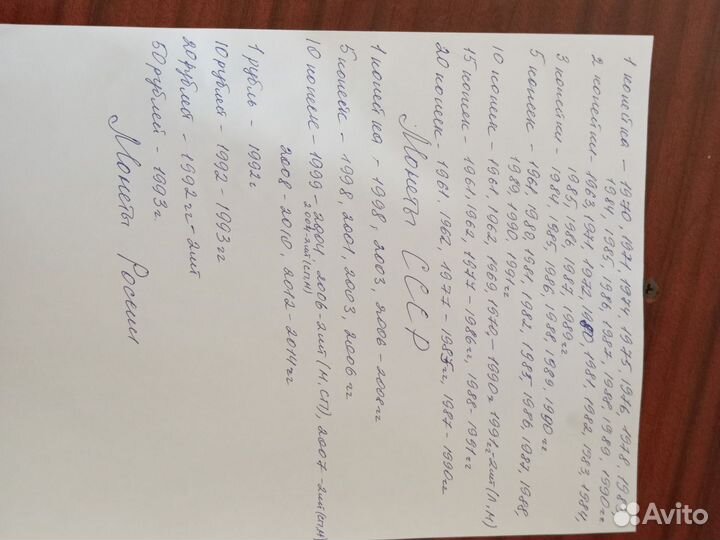 1 копейка – 1970, 1971, 1974, 1975, 1976, 1978, 198
1984, 1985, 1986, 1987, 1988, 1989, 1990гг.
2 копейки - 1963, 1971, 1972, 1980, 1981, 1982, 1983, 1984,
1985, 1986, 1987, 1989гг
3 копейки - 1984, 1985, 1986, 1988, 1989, 1990гг
5 копеек - 1961, 1980, 1981, 1982, 1985, 1986, 1987, 1988,
1989, 1990, 1991гг
10 копеек - 1961, 1962, 1969, 1970, - 1990г 1991гг-2шт(Л,М)
15 копеек - 1961, 1962, 1977 - 1986гг, 1988-1991гг
20 копеек - 1961, 1962, 1977 - 1985гг, 1987-1990гг
Монеты СССР
1 копейка - 1998, 2003, 2006-2008гг
5 копеек - 1998, 2001, 2003, 2006гг
10 копеек - 1999-2004, 2006-2шт(М.СП), 2007-2шт(СП,М)
2004-2шт(СП,М)
2008-2010, 2012-2014гг
1 рубль - 1992г
10 рублей - 1992-1993гг
20 рублей - 1992гг-2шт
50 рублей - 1993г.
Монеты России
Avito